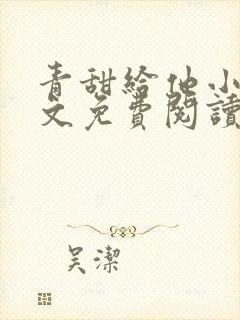 青甜給他小
文免費閱讀
吴潔